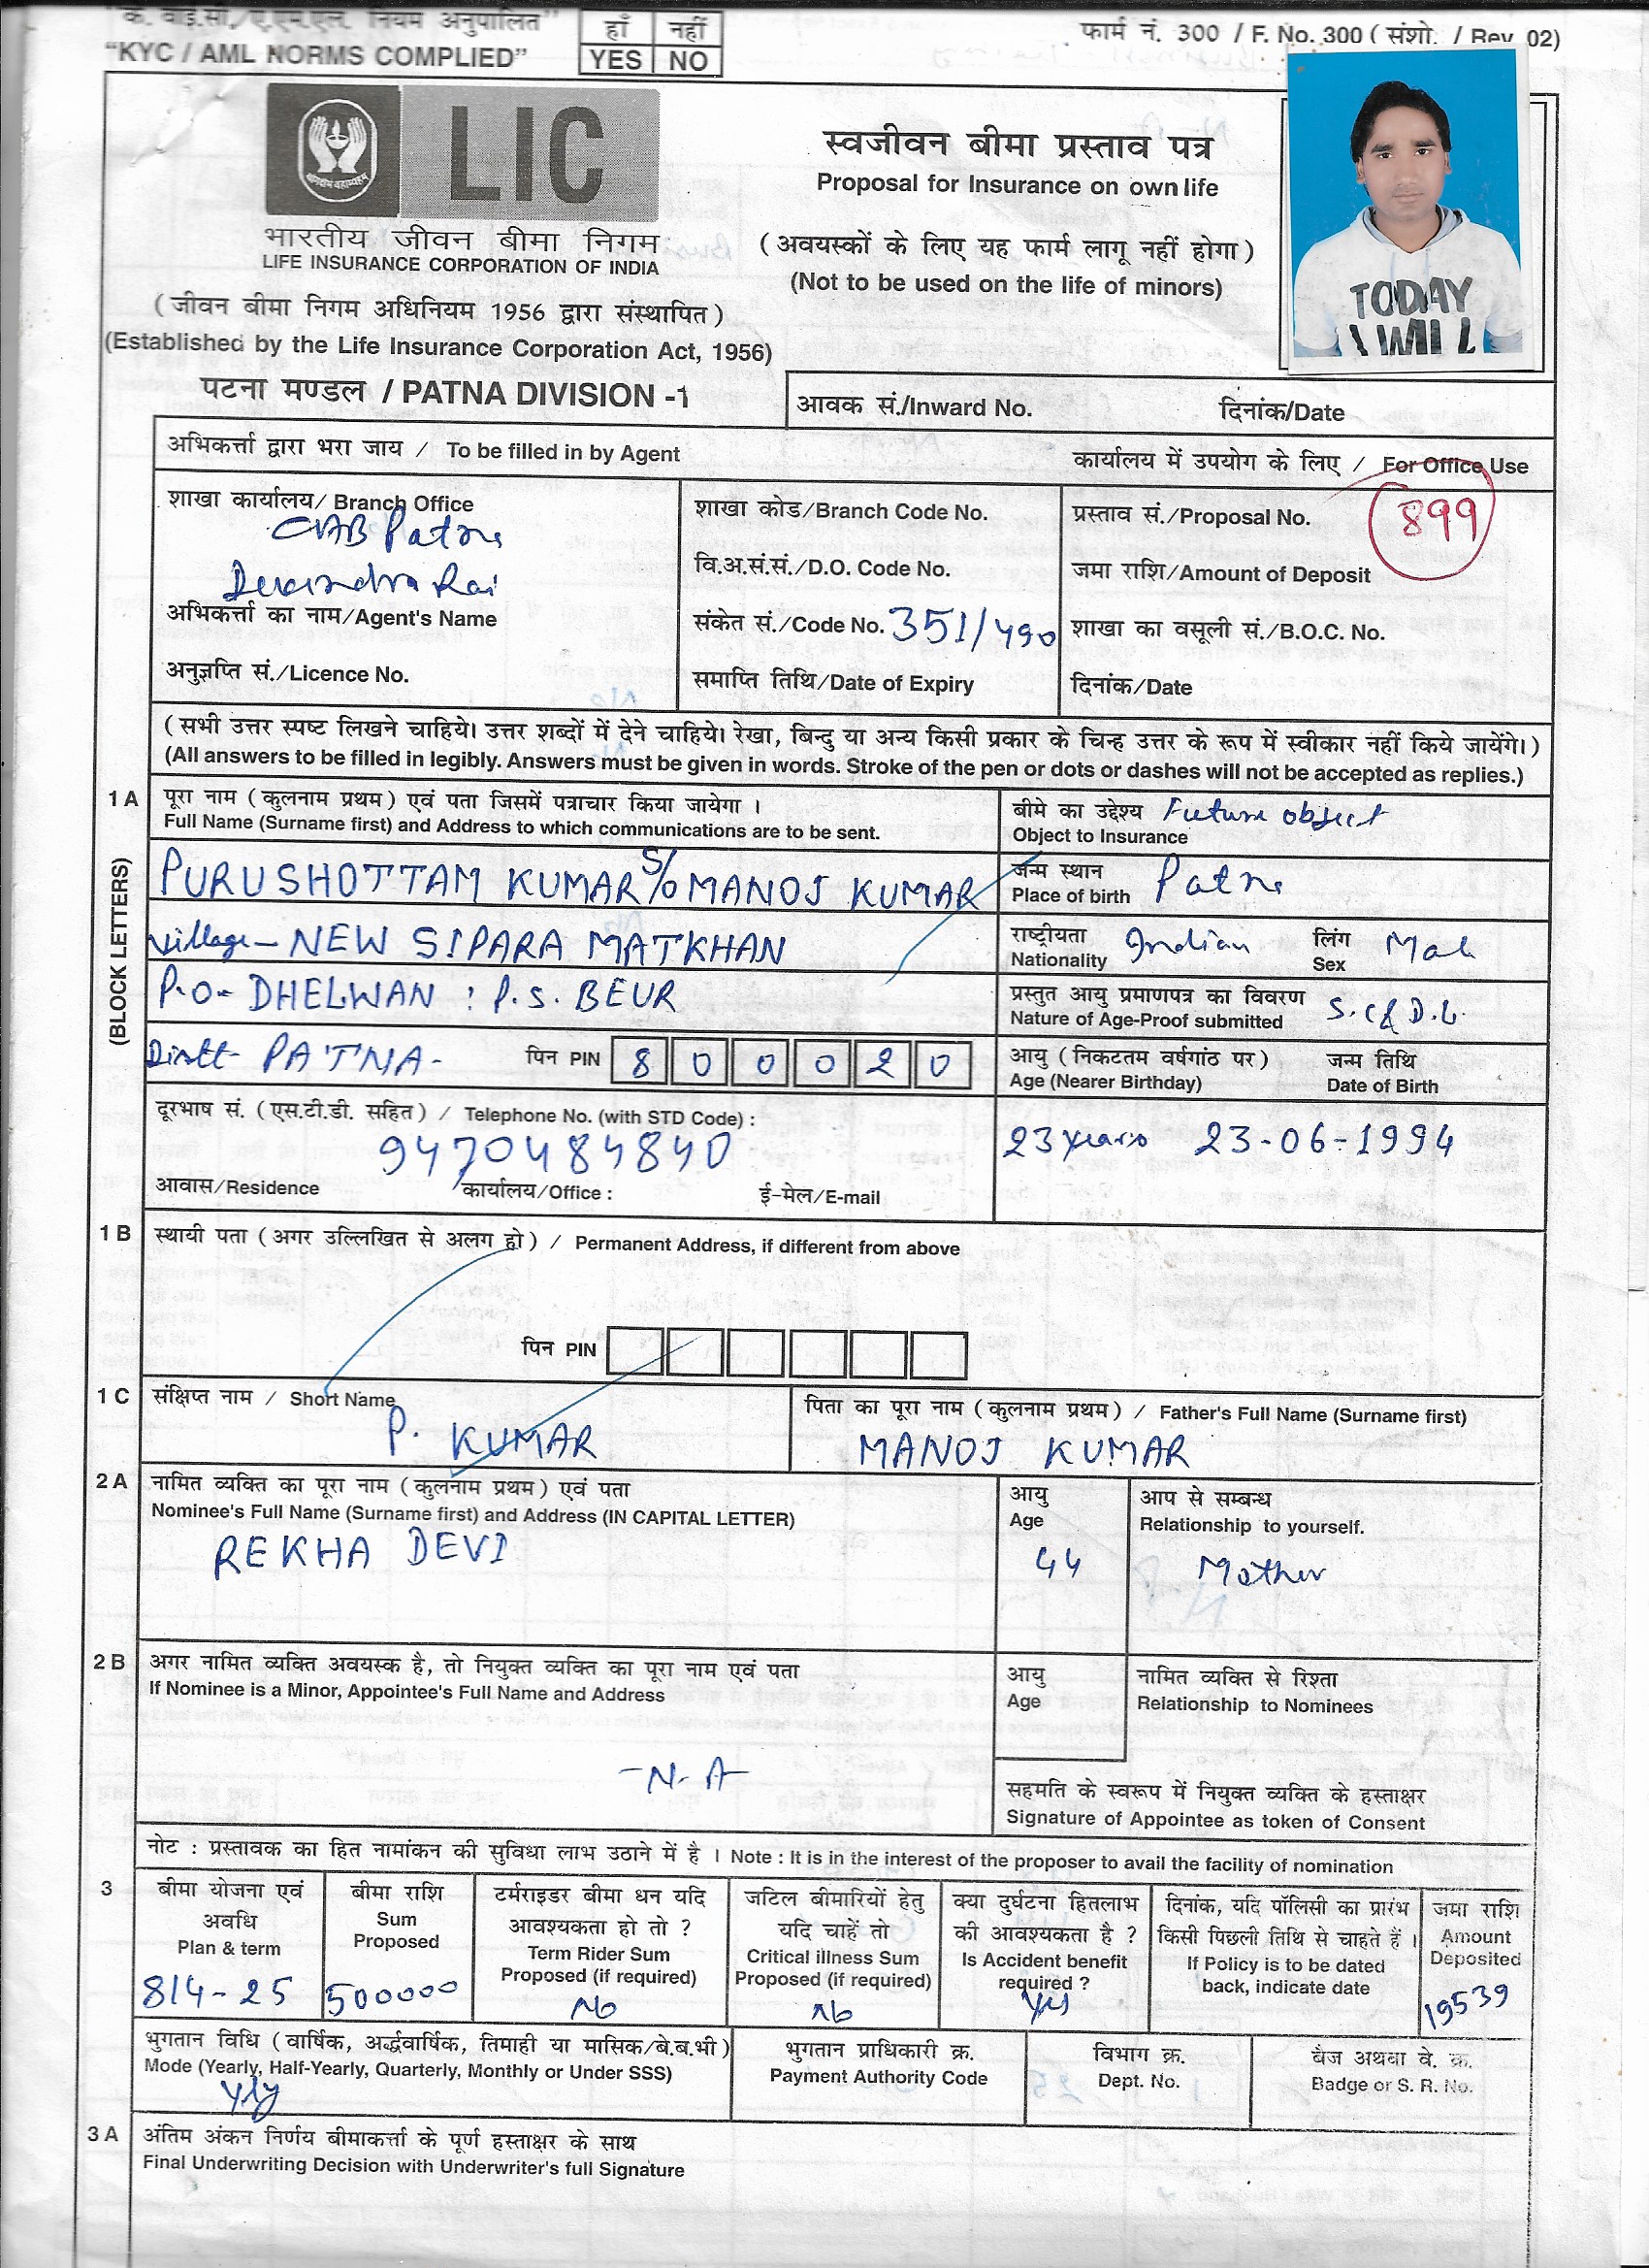 "के. वाई.सी./ए.एम.एल. नियम अनुपालित"
"KYC / AML NORMS COMPLIED"
हाँ नहीं
YES NO
फार्म नं. 300 / F. No. 300 ( संशो. / Rev. 02)
LIC
भारतीय जीवन बीमा निगम
LIFE INSURANCE CORPORATION OF INDIA
( जीवन बीमा निगम अधिनियम 1956 द्वारा संस्थापित )
(Established by the Life Insurance Corporation Act, 1956)
स्वजीवन बीमा प्रस्ताव पत्र
Proposal for Insurance on own life
( अवयस्कों के लिए यह फार्म लागू नहीं होगा )
(Not to be used on the life of minors)
TODAY
I WILL
पटना मण्डल / PATNA DIVISION -1
आवक सं./Inward No. दिनांक/Date
अभिकर्त्ता द्वारा भरा जाय / To be filled in by Agent
कार्यालय में उपयोग के लिए / For Office Use
शाखा कार्यालय/ Branch Office
CAB Patna
Devendra Rai
अभिकर्त्ता का नाम/Agent's Name
अनुज्ञप्ति सं./Licence No.
शाखा कोड/Branch Code No.
वि.अ.सं.सं./D.O. Code No.
संकेत सं./Code No. 351/490
समाप्ति तिथि/Date of Expiry
प्रस्ताव सं./Proposal No. 899
जमा राशि/Amount of Deposit
शाखा का वसूली सं./B.O.C. No.
दिनांक/Date
( सभी उत्तर स्पष्ट लिखने चाहिये। उत्तर शब्दों में देने चाहिये। रेखा, बिन्दु या अन्य किसी प्रकार के चिन्ह उत्तर के रूप में स्वीकार नहीं किये जायेंगे। )
(All answers to be filled in legibly. Answers must be given in words. Stroke of the pen or dots or dashes will not be accepted as replies.)
1 A पूरा नाम ( कुलनाम प्रथम ) एवं पता जिसमें पत्राचार किया जायेगा ।
Full Name (Surname first) and Address to which communications are to be sent.
(BLOCK LETTERS)
PURUSHOTTAM KUMAR S/o MANOJ KUMAR
Village - NEW SIPARA MATKHAN
P.O- DHELWAN : P.S. BEUR
Distt- PATNA- पिन PIN 8 0 0 0 2 0
बीमे का उद्देश्य Future object
Object to Insurance
जन्म स्थान
Place of birth Patna
राष्ट्रीयता
Nationality Indian
लिंग
Sex Male
प्रस्तुत आयु प्रमाणपत्र का विवरण
Nature of Age-Proof submitted S.C & D.L.
आयु ( निकटतम वर्षगांठ पर ) जन्म तिथि
Age (Nearer Birthday) Date of Birth
23 years 23-06-1994
दूरभाष सं. ( एस.टी.डी. सहित ) / Telephone No. (with STD Code) :
9470484840
आवास/Residence कार्यालय/Office : ई-मेल/E-mail
1 B स्थायी पता ( अगर उल्लिखित से अलग हो ) / Permanent Address, if different from above
पिन PIN
1 C संक्षिप्त नाम / Short Name
P. KUMAR
पिता का पूरा नाम ( कुलनाम प्रथम ) / Father's Full Name (Surname first)
MANOJ KUMAR
2 A नामित व्यक्ति का पूरा नाम ( कुलनाम प्रथम ) एवं पता
Nominee's Full Name (Surname first) and Address (IN CAPITAL LETTER)
REKHA DEVI
आयु
Age
44
आप से सम्बन्ध
Relationship to yourself.
Mother
2 B अगर नामित व्यक्ति अवयस्क है, तो नियुक्त व्यक्ति का पूरा नाम एवं पता
If Nominee is a Minor, Appointee's Full Name and Address
-N-A-
आयु
Age
नामित व्यक्ति से रिश्ता
Relationship to Nominees
सहमति के स्वरूप में नियुक्त व्यक्ति के हस्ताक्षर
Signature of Appointee as token of Consent
नोट : प्रस्तावक का हित नामांकन की सुविधा लाभ उठाने में है । Note : It is in the interest of the proposer to avail the facility of nomination
3 बीमा योजना एवं
अवधि
Plan & term
814-25
बीमा राशि
Sum
Proposed
500000
टर्मराइडर बीमा धन यदि
आवश्यकता हो तो ?
Term Rider Sum
Proposed (if required)
No
जटिल बीमारियों हेतु
यदि चाहें तो
Critical illness Sum
Proposed (if required)
No
क्या दुर्घटना हितलाभ
की आवश्यकता है ?
Is Accident benefit
required ?
Yes
दिनांक, यदि पॉलिसी का प्रारंभ
किसी पिछली तिथि से चाहते हैं ।
If Policy is to be dated
back, indicate date
जमा राशि
Amount
Deposited
19539
भुगतान विधि ( वार्षिक, अर्द्धवार्षिक, तिमाही या मासिक/बे.ब.भी )
Mode (Yearly, Half-Yearly, Quarterly, Monthly or Under SSS)
Yly
भुगतान प्राधिकारी क्र.
Payment Authority Code
विभाग क्र.
Dept. No.
बैज अथवा वे. क्र.
Badge or S. R. No.
3 A अंतिम अंकन निर्णय बीमाकर्त्ता के पूर्ण हस्ताक्षर के साथ
Final Underwriting Decision with Underwriter's full Signature